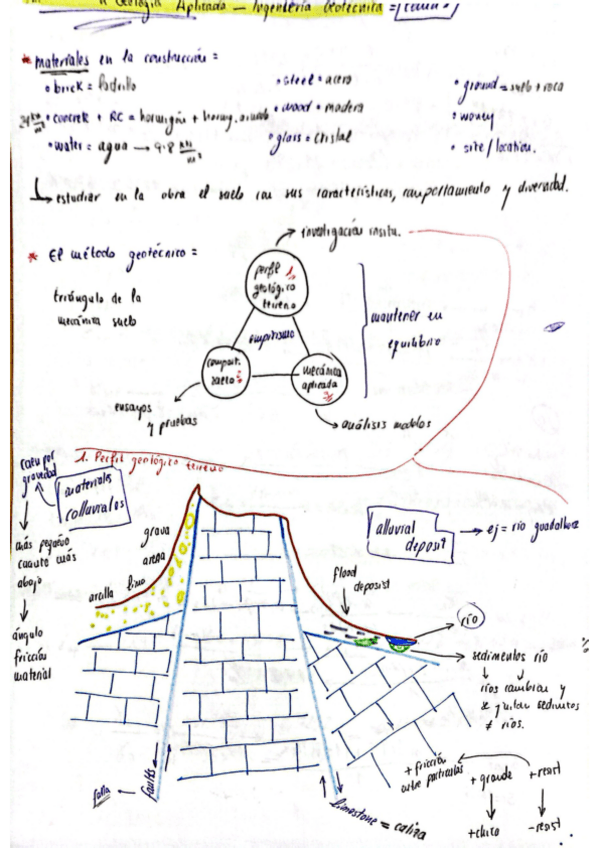 Geología Aplicada — Ingeniería Geotécnica =
* materiales en la construcción =
• brick = ladrillo
• steel = acero
• ground = suelo + roca
• concrek + RC = hormigón + hormig. armado
• wood = madera
• money
• water = agua → 9.8 kN/m³
• glass = cristal
• site / location.
↳ estudiar en la obra el suelo con sus características, comportamiento y diversidad.
→ investigación insitu.
* El método geotécnico =
perfil 1.
geológico
terreno
triángulo de la
mecánica suelo
empirismo
mantener en
equilibrio
comport.
suelo 2.
mecánica
aplicada
3.
ensayos
y pruebas
→ análisis modelos
1. Perfil geológico terreno
caen por
gravedad
materiales
colluvialos
alluvial
deposit
→ ej = río guadalhorce
más pequeño
cuanto más
abajo
grava
arena
limo
arcilla
flood
deposist
río
ángulo
fricción
material
sedimentos río
ríos cambian y
se quedan sedimitos
≠ ríos.
+ fricción
entre partículas
+ grande
+ resist
falla ← faults
limestone = caliza
+ chico
- resist